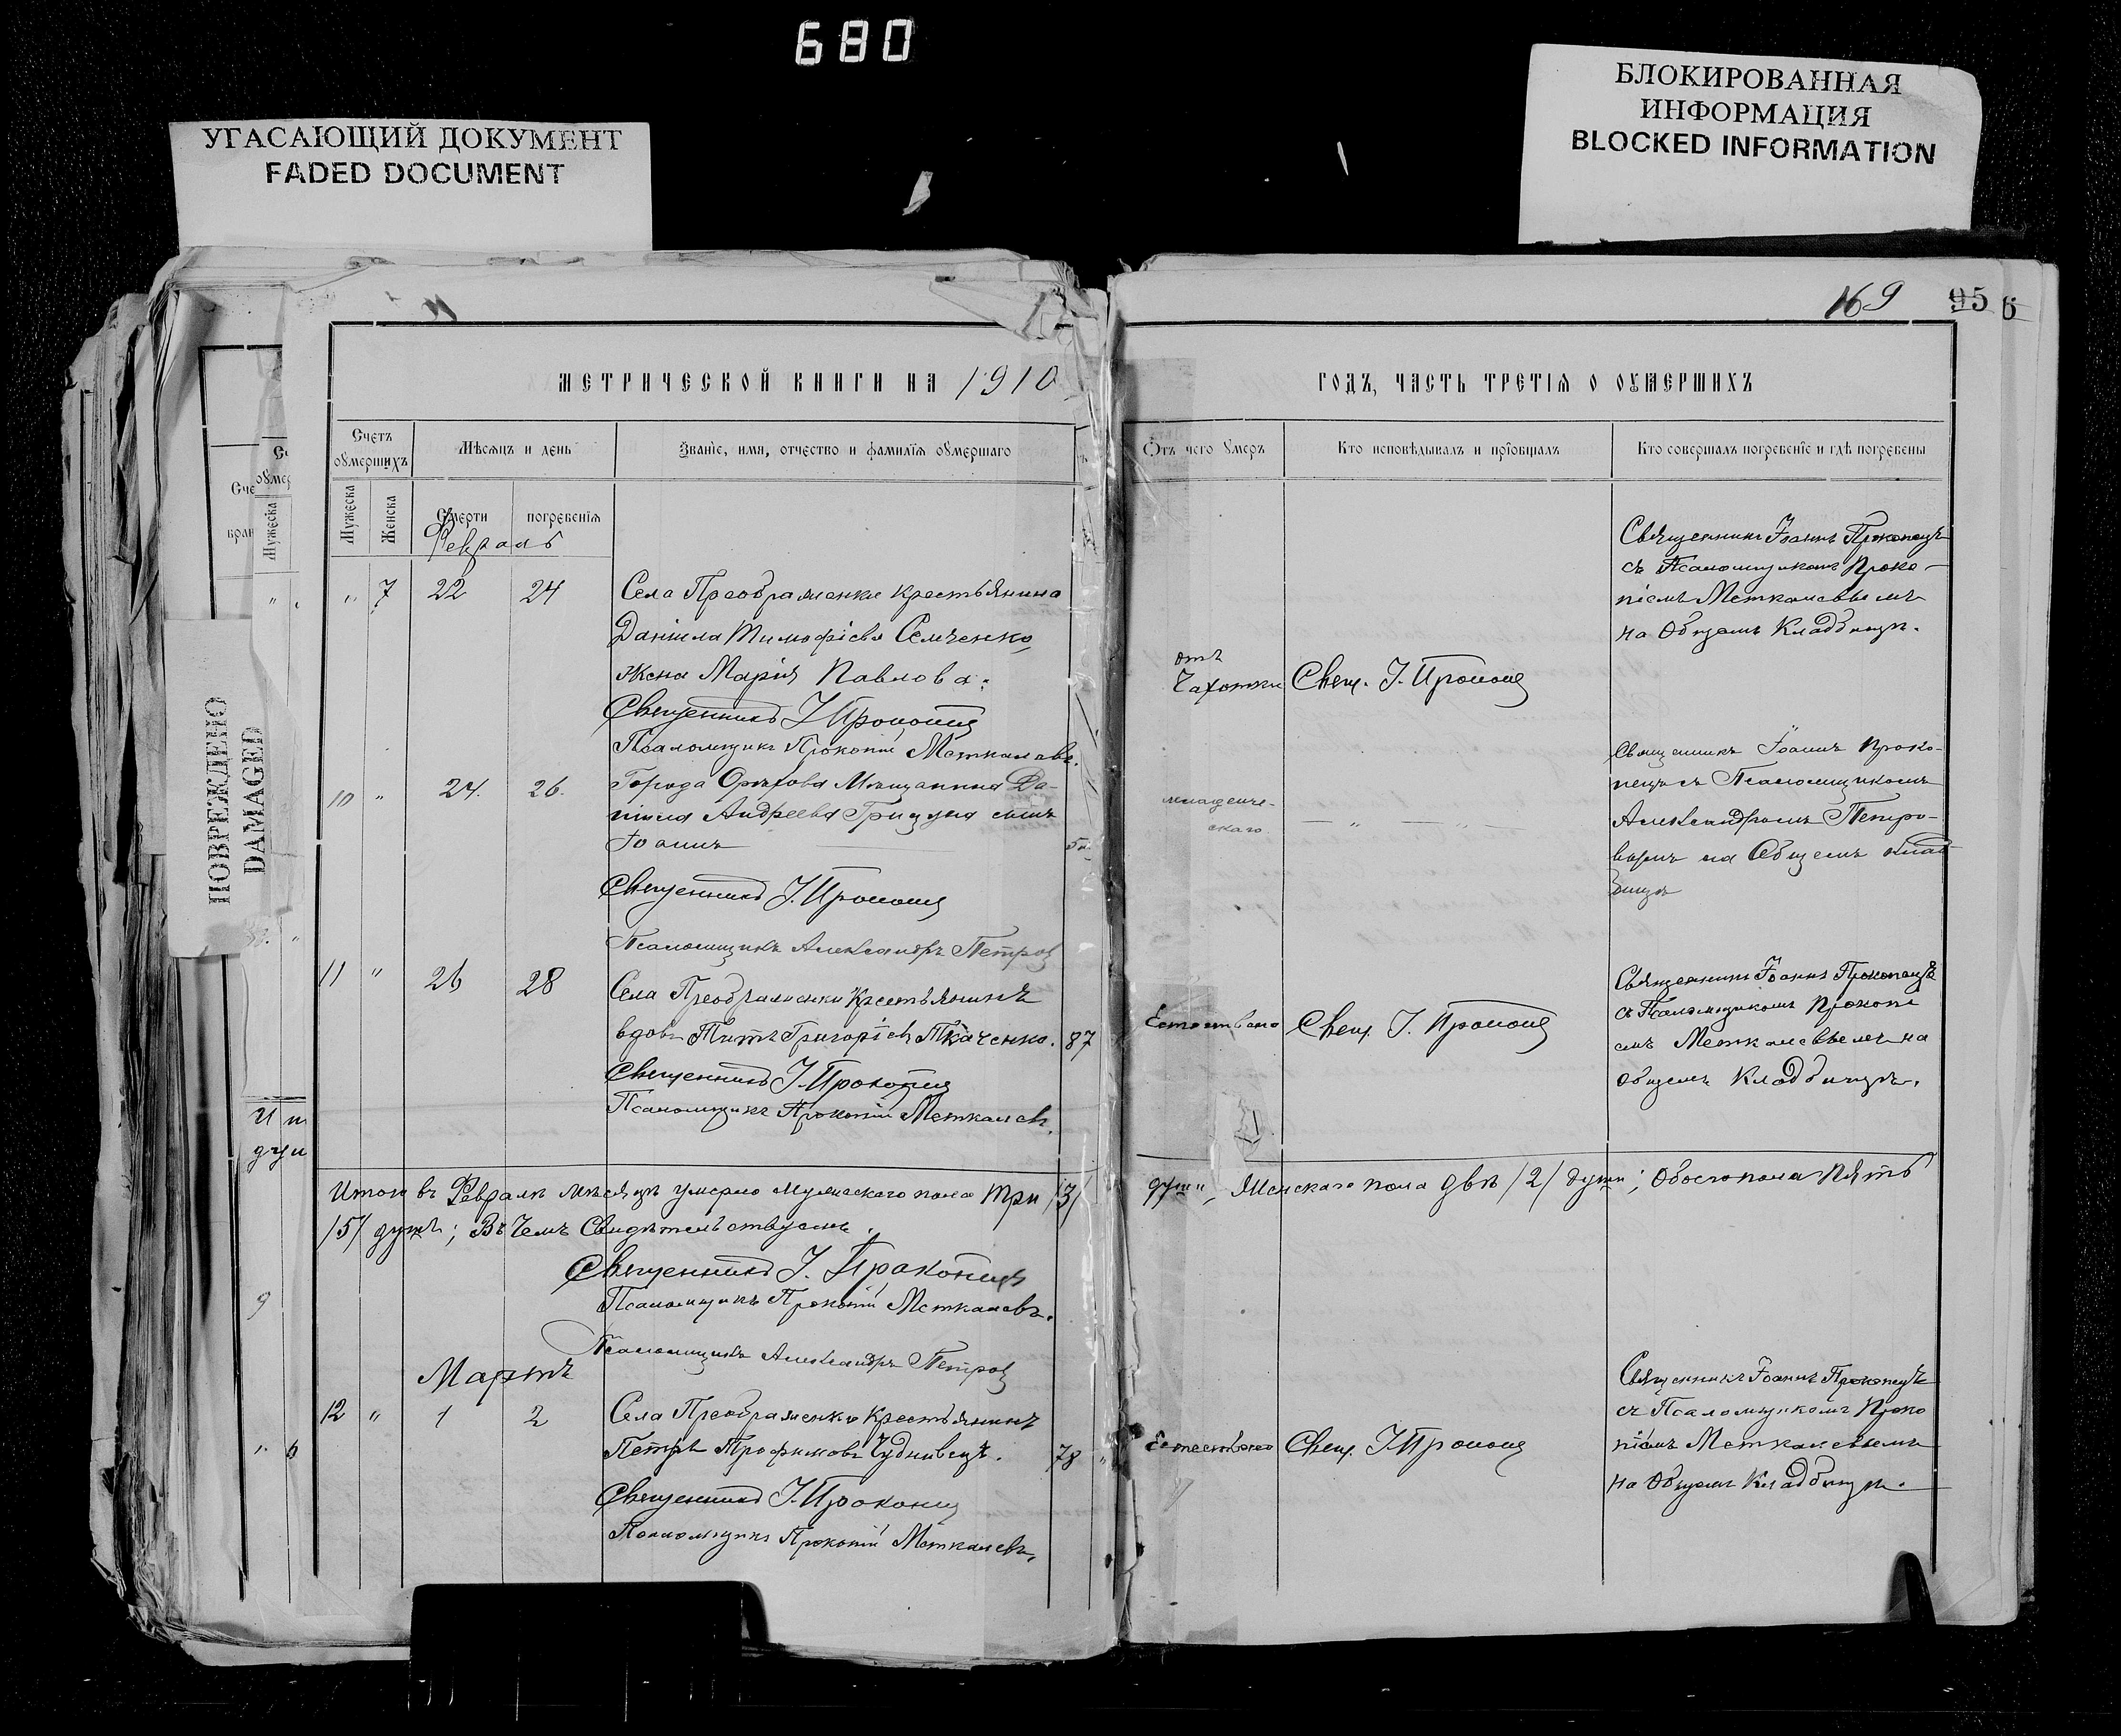 680
УГАСАЮЩИЙ ДОКУМЕНТ
FADED DOCUMENT
БЛОКИРОВАННАЯ
ИНФОРМАЦИЯ
BLOCKED INFORMATION
ПОВРЕЖДЕНО
DAMAGED
169
95
6
МЕТРИЧЕСКОЙ КНИГИ НА 1910
ГОДЪ, ЧАСТЬ ТРЕТІЯ О ОУМЕРШИХЪ
Счетъ оумершихъ
Мѣсяцъ и день
Званіе, имя, отчество и фамилія оумершаго
Отъ чего оумеръ
Кто исповѣдывалъ и пріобщалъ
Кто совершалъ погребеніе и гдѣ погребены
Мужеска
Женска
Смерти
погребенія
Февраль
" 7 22 24
Села Преображенки крестьянина
Даніила Тимофіева Семченко,
жена Марія Павлова.
Священникъ І Прокопец
Псаломщикъ Прокопій Меткалевъ.
отъ
Чахотки
Свящ. І. Прокопец
Священникъ Іоаннъ Прокопецъ
съ Псаломщикомъ Проко-
піемъ Меткалевымъ
на Общемъ Кладбищѣ.
10 " 24. 26.
Города Орѣхова Мѣщанина Да-
ніила Андреева сынъ
Іоаннъ
Священникъ І. Прокопец
Псаломщикъ Александръ Петров
младенче-
скаго
— " — " —
Священникъ Іоаннъ Проко-
пецъ съ Псаломщикомъ
Александромъ Петро-
вымъ на Общемъ клад-
бищѣ
11 " 26 28
Села Преображенки Крестьянинъ
вдовъ Титъ Григоріевъ Ткаченко. 87
Священникъ І. Прокопец
Псаломщикъ Прокопій Меткалевъ.
Естественно
Свящ. І. Прокопец
Священникъ Іоаннъ Прокопецъ
съ Псаломщикомъ Прокопі
емъ Меткалевымъ на
Общемъ Кладбищѣ.
Итого въ Февралѣ мѣсяцѣ умерло мужескаго пола три /3/
души, Женскаго пола двѣ /2/ души; Обоего пола пять
/5/ душъ; Въ Чемъ Свидѣтельствуемъ.
Священникъ І. Прокопецъ
Псаломщикъ Прокопій Меткалевъ.
Псаломщикъ Александръ Петров
Мартъ
12 " 1 2
Села Преображенки Крестьянинъ
Петръ Трофимовъ Чудновецъ. 78 "
Священникъ І. Прокопец
Псаломщикъ Прокопій Меткалевъ.
Естественно
Свящ. І Прокопец
Священникъ Іоаннъ Прокопецъ
съ Псаломщикомъ Проко
піемъ Меткалевымъ
на Общемъ Кладбищѣ.